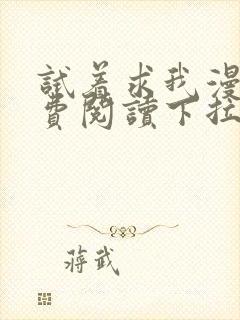 試着求我漫
費閱讀下拉
蔣武